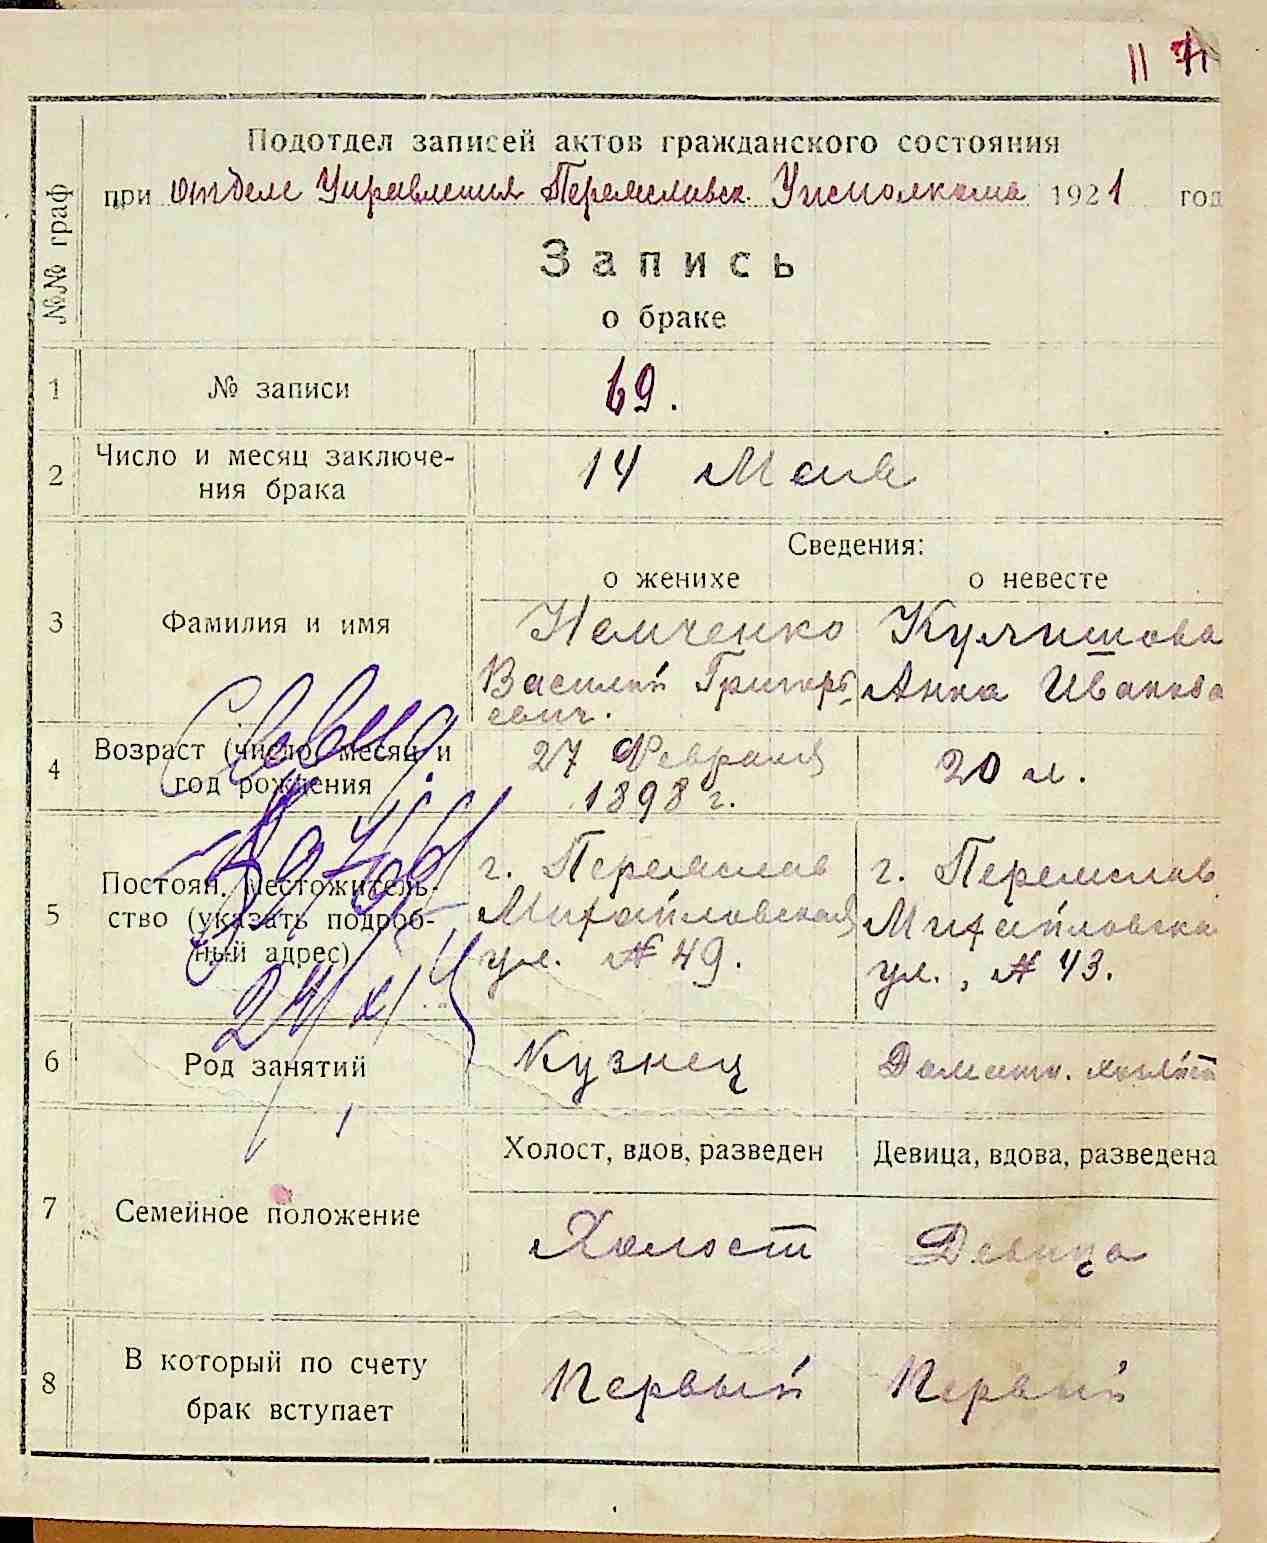 Подотдел записей актов гражданского состояния
при отделе Управления Переяславск. Уисполкома 1921 год
№№ граф
Запись
о браке
1 № записи 69.
2 Число и месяц заключе-
ния брака 14 Мая
Сведения:
о женихе о невесте
3 Фамилия и имя
Немченко
Василий Григорь-
евич.
Анна Иванова
4 Возраст (число, месяц и
год рождения
27 Февраля
1898 г.
20 л.
5 Постоян. местожитель-
ство (указать подроб-
ный адрес)
г. Переяслав
Михайловская
ул. № 49.
г. Переяслав
Михайловска
ул., № 43.
6 Род занятий Кузнец Домашн.
7 Семейное положение
Холост, вдов, разведен Девица, вдова, разведена
Холост Девица
8 В который по счету
брак вступает
Первый Первый